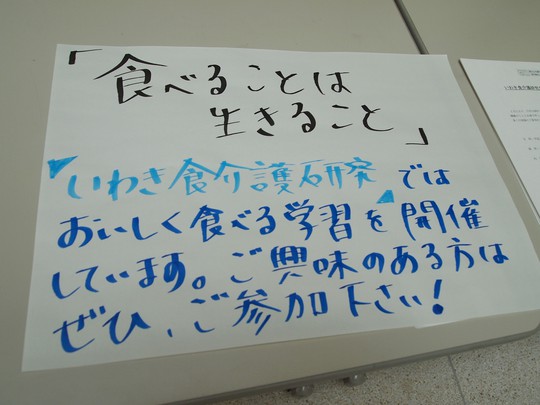 「食べることは
生きること」
「いわき食介護研究」では
おいしく食べる学習を開催
しています。ご興味のある方は
ぜひ、ご参加下さい!